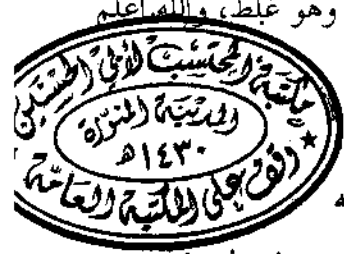 وهو غلط، والله أعلم
مكتبة المحتسب لأبي الحسنين
المدينة المنورة
١٤٣٠ هـ
وقف على المكتبة العامة